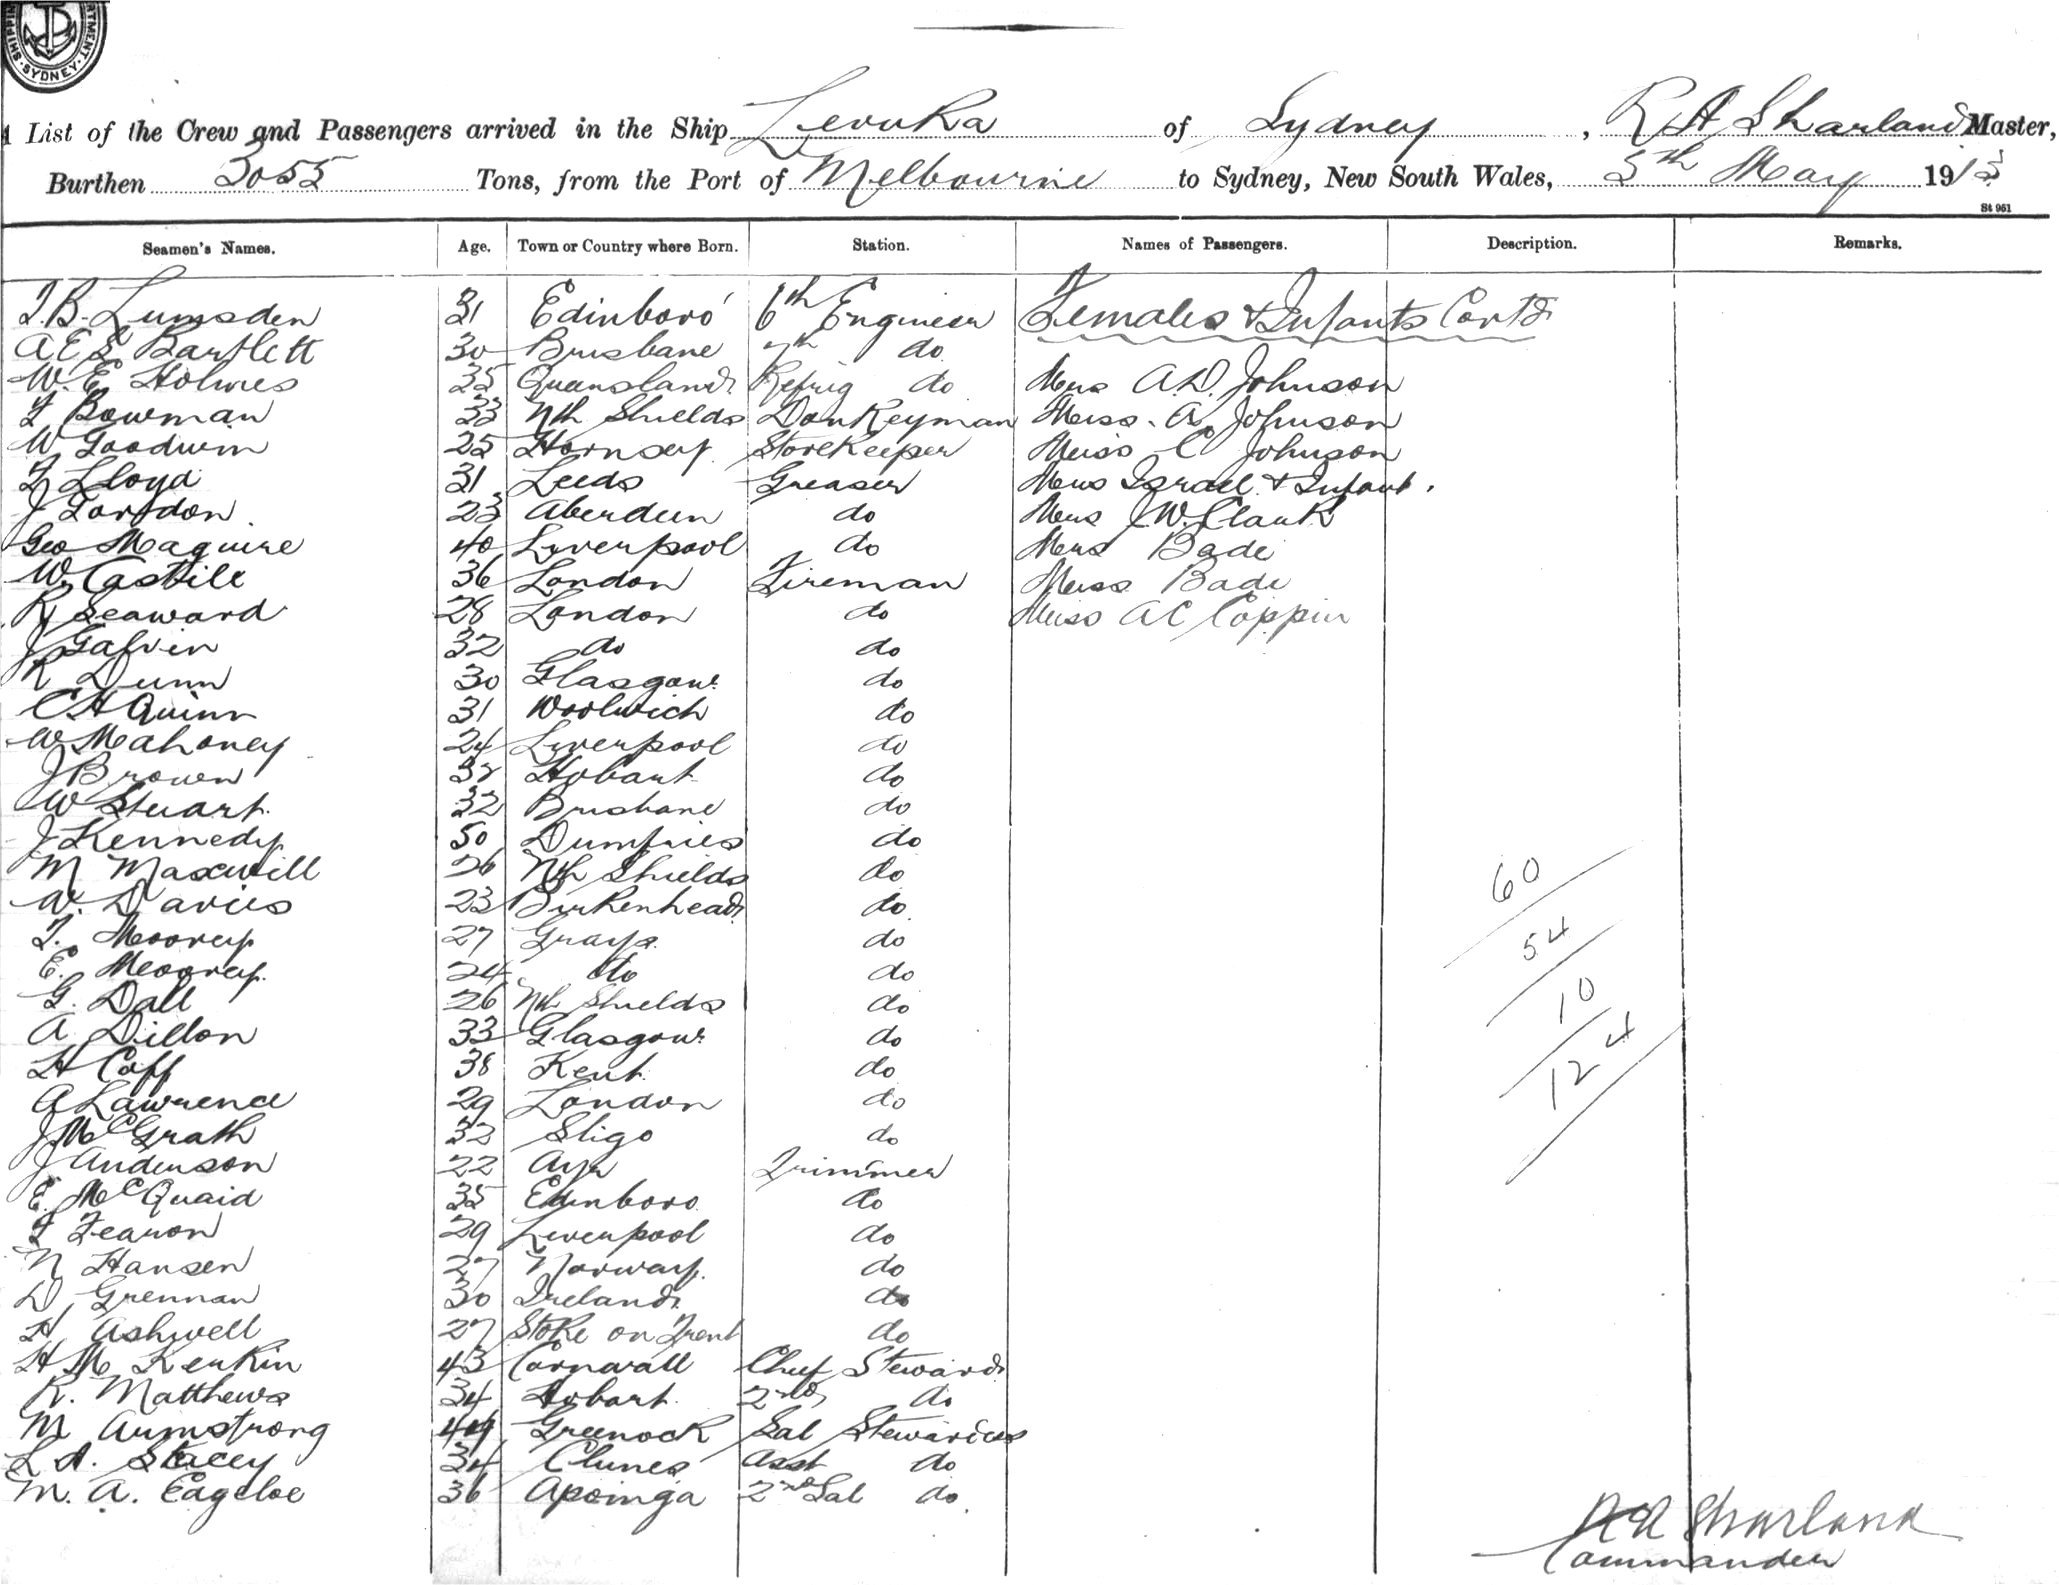 SHIPPING DEPARTMENT. SYDNEY.
A List of the Crew and Passengers arrived in the Ship Levuka of Sydney, R A Sharland Master,
Burthen 3055 Tons, from the Port of Melbourne to Sydney, New South Wales, 5th May 1913
St 961
Seamen's Names. Age. Town or Country where Born. Station. Names of Passengers. Description. Remarks.
T. B. Lumsden 31 Edinboro' 6th Engineer Females & Infants Contd
A E S Bartlett 30 Brisbane 7th do
W. E. Holmes 25 Queensland Refrig do Mrs A. D. Johnson
F Bowman 33 Nth Shields Donkeyman Miss. A. Johnson
W Goodwin 25 Hornsey Storekeeper Miss C Johnson
F Lloyd 31 Leeds Greaser Mrs Israel & Infant.
J Gordon 23 Aberdeen do Mrs J W. Clark
Geo Maguire 40 Liverpool do Mrs Bade
W. Castile 36 London Fireman Miss Bade
R Seaward 28 London do Miss A C Coppin
J Galvin 32 do do
R Dunn 30 Glasgow do
C H Quinn 31 Woolwich do
W Mahoney 24 Liverpool do
J Brown 32 Hobart do
W Stuart 32 Brisbane do
J Kennedy 50 Dumfries do
M Maxwell 26 Nth Shields do
W. Davies 23 Birkenhead do
T. Moorey 27 Grays do
E. Moorey 24 do do
G. Dall 26 Nth Shields do
A Dillon 33 Glasgow do
H Coff 38 Kent do
A Lawrence 29 London do
J McGrath 32 Sligo do
J Anderson 22 Ayr Trimmer
E. McQuaid 35 Edinboro do
F Fearon 29 Liverpool do
N Hansen 27 Norway do
D Grennan 30 Ireland do
H Ashwell 27 Stoke on Trent do
H M Kerkin 43 Cornwall Chief Steward
R. Matthews 34 Hobart 2nd do
M Armstrong Greenock Sal Stewardess
L A. Stacey 34 Clunes Asst do
M. A. 36 2nd Sal do
60
54
10
124
R A Sharland
Commander